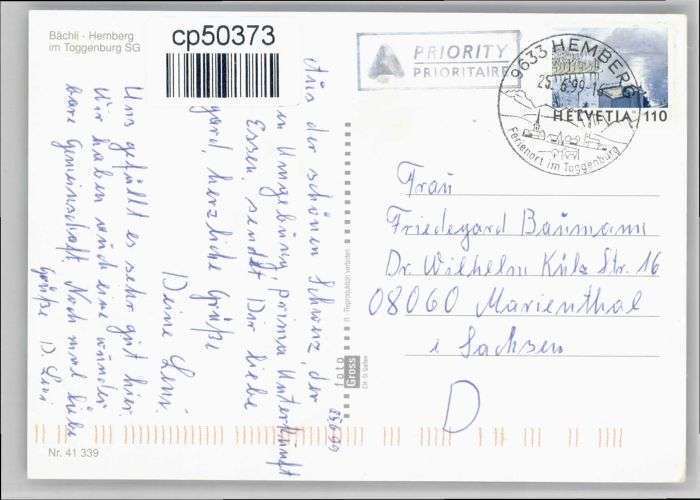 Bächli - Hemberg
im Toggenburg SG
cp50373
PRIORITY
PRIORITAIRE
9633 HEMBERG
25.6.99-1
Ferienort im Toggenburg
HELVETIA 110
25.6.99
Aus der schönen Schweiz, der
Umgebung, prima Unterkunft
Essen, sendet Dir liebe
gard, herzliche Grüße
Deine Leni
Uns gefällt es sehr gut hier.
Wir haben auch eine wunder
bare Gemeinschaft. Noch mal liebe
Grüße D. Leni
Frau
Friedegard Baumann
Dr. Wilhelm Külz Str. 16
08060 Marienthal
i Sachsen
D
Reproduktion verboten
foto
Gross
Nr. 41 339